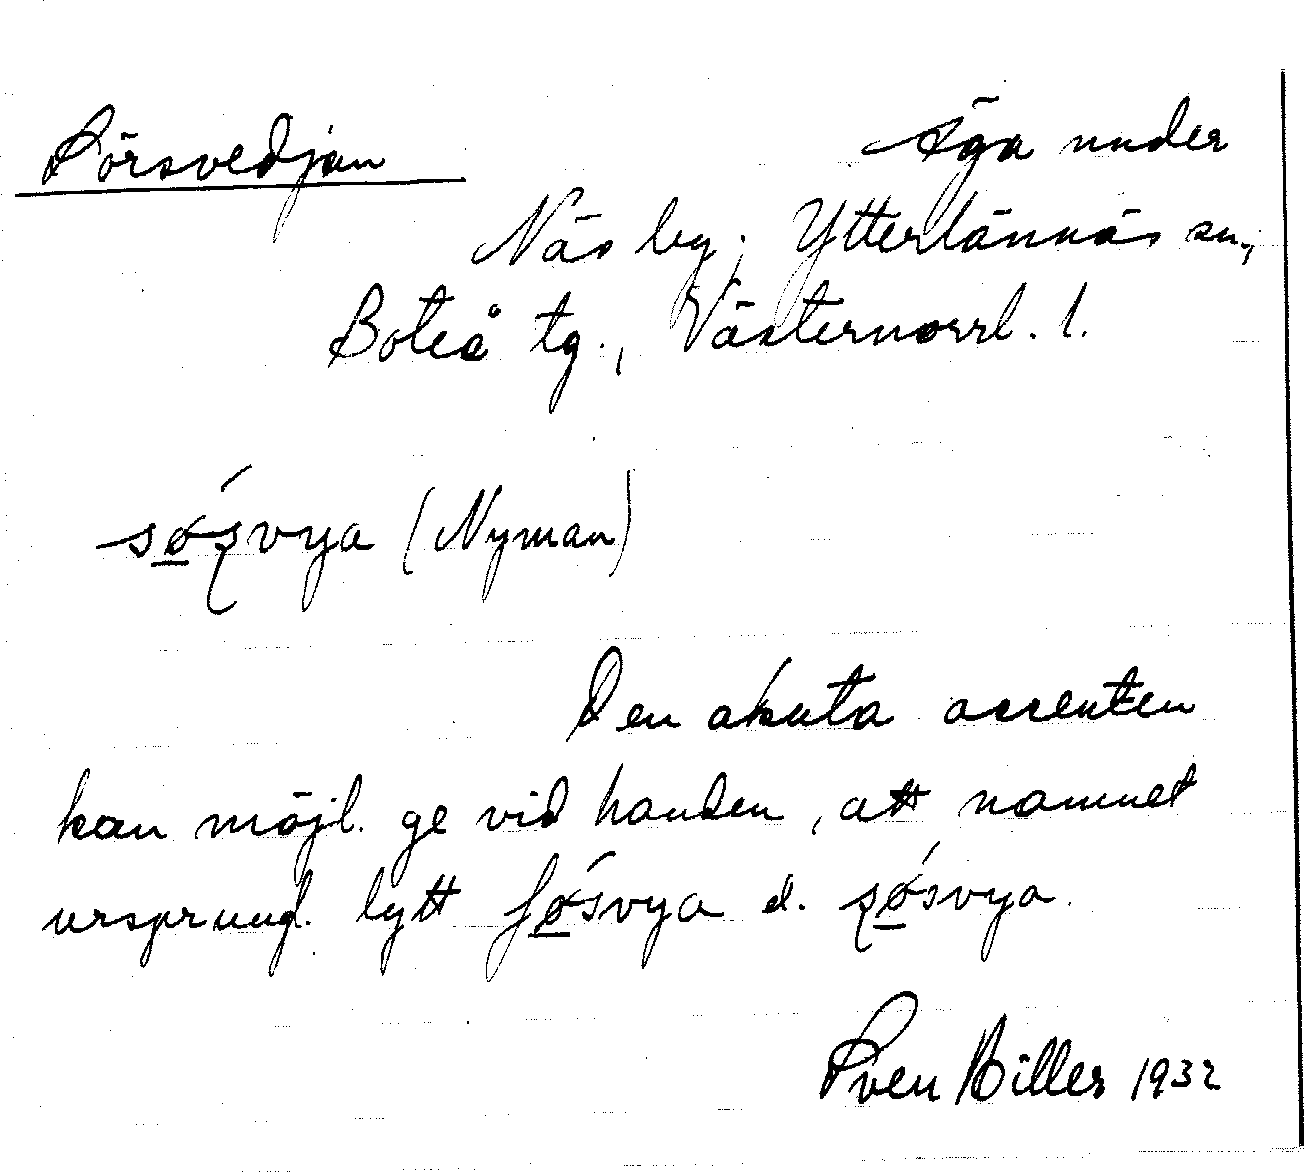 Sörsvedjan
Äga under
Näs by, Ytterlännäs sn,
Boteå tg., Västernorrl. l.
sǿʂvya (Nyman)
Den akuta accenten
kan möjl. ge vid handen, att namnet
ursprungl. lytt fǿsvya el. ʂǿsvya.
Sven Hiller 1932